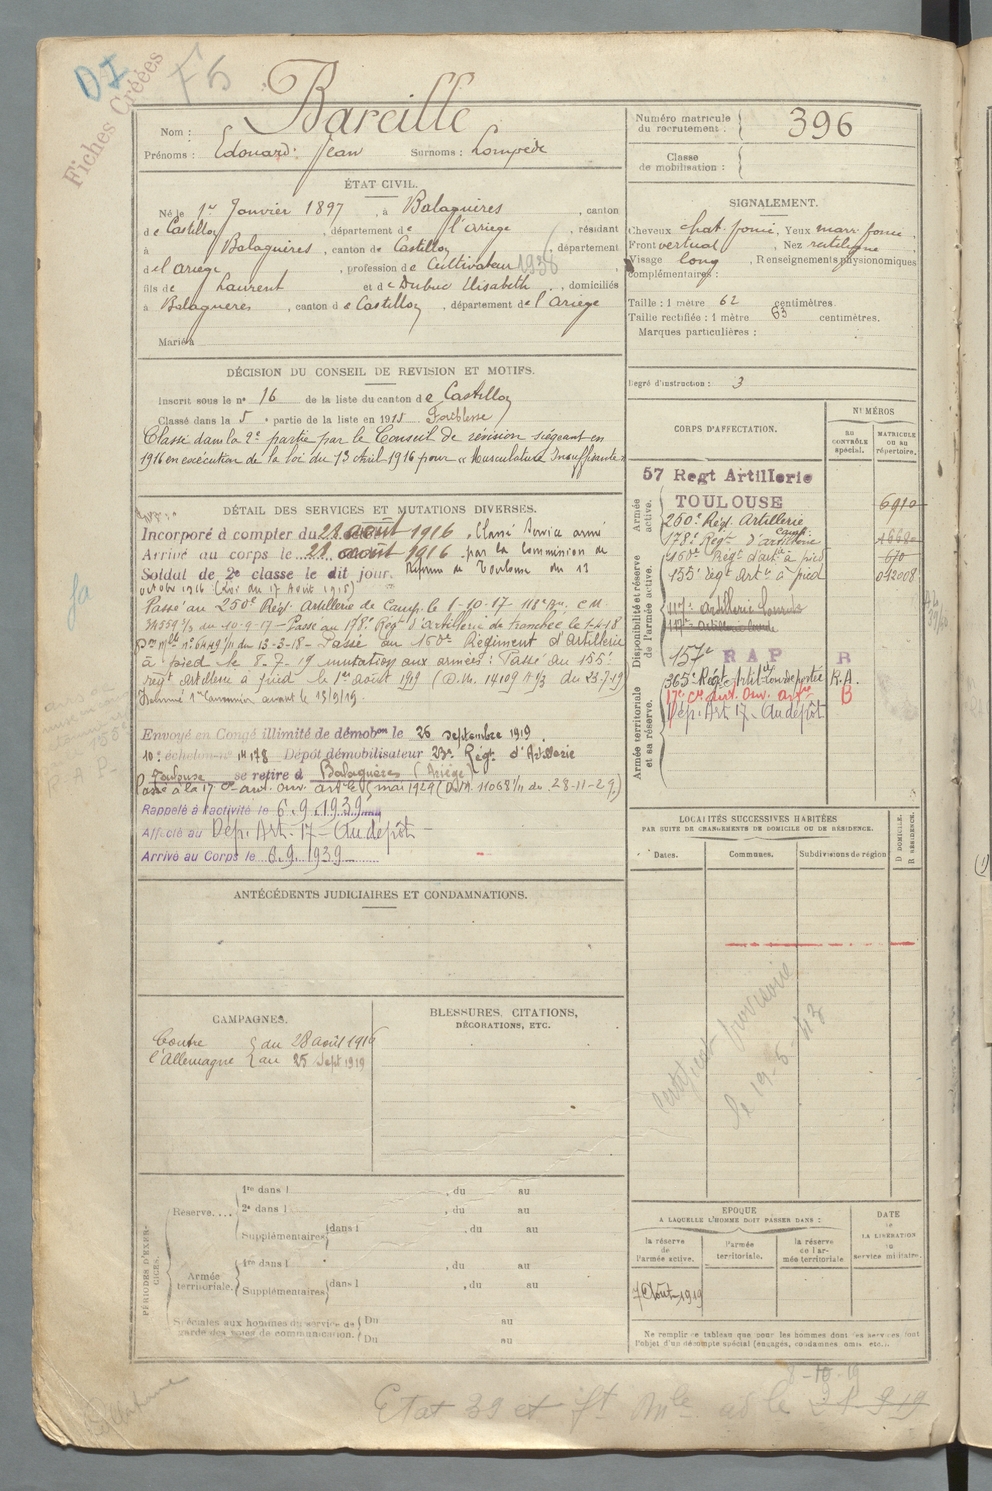 DI
F5
Fiches Créées
Bareille
Nom :
Prénoms : Edouard Jean Surnoms : Lompède
Numéro matricule du recrutement : 396
Classe de mobilisation :
ÉTAT CIVIL.
Né le 1er Janvier 1897, à Balaguères, canton
de Castillon, département de l'Ariège, résidant
à Balaguères, canton de Castillon, département
de l'Ariège, profession de Cultivateur 1938
fils de Laurent et de Dubuc Elisabeth, domiciliés
à Balaguères, canton de Castillon, département de l'Ariège
Marié à
SIGNALEMENT.
Cheveux chat. foncé, Yeux marr. foncé,
Front vertical, Nez rectiligne
Visage long, Renseignements physionomiques
complémentaires :
Taille : 1 mètre 62 centimètres.
Taille rectifiée : 1 mètre 63 centimètres.
Marques particulières :
Degré d'instruction : 3
DÉCISION DU CONSEIL DE REVISION ET MOTIFS.
Inscrit sous le no 16 de la liste du canton de Castillon
Classé dans la 5e partie de la liste en 1915 Faiblesse
Classé dans la 2e partie par le Conseil de révision siégeant en
1916 en exécution de la loi du 13 Avril 1916 pour « Musculature Insuffisante »
DÉTAIL DES SERVICES ET MUTATIONS DIVERSES.
Incorporé à compter du 28 août 1916. Classé Service armé
Arrivé au corps le 28 août 1916. par la Commission de
Soldat de 2e classe le dit jour. Réforme de Toulouse du 12
octobre 1916 (Loi du 17 Août 1915)
Passé au 250e Rég. Artillerie de Camp. le 1-10-17
du 10-9-17 – Passé au 178e Reg. d'Artillerie de tranchée le
du 13-3-18 – Passé au 160e Régiment d'Artillerie
à pied le 8-7-19 mutation aux armées : Passé au 155e
régt artillerie à pied le 1er août 1919 (D.M. 14109 du 23-7-19)
Envoyé en Congé illimité de démobon le 26 septembre 1919.
10e échelon no 178 Dépôt démobilisateur 23e Régt d'Artillerie
Toulouse se retire à Balaguères (Ariège)
Passé à la 17 Cie aut. ouv. art. le mai 1929 (D.M. 11068 1/11 du 28-11-29)
Rappelé à l'activité le 6.9.1939
Affecté au Dép. Art. 17 – Au dépôt –
Arrivé au Corps le 6.9.1939
CORPS D'AFFECTATION.
NUMÉROS
au contrôle spécial.
MATRICULE ou au répertoire.
Armée active.
57 Regt Artillerie
TOULOUSE 6910
250e Rég. Artillerie
178e Régt d'artillerie
160e Régt d'artie à pied 610
155e régt Artie à pied 042008
Disponibilité et réserve de l'armée active.
117e Artillerie Lourde
157e R A P R
365e Régt Artie Lourde portée R.A.
17e Cie aut. ouv. artie B
Dép. Art. 17 – Au dépôt
Armée territoriale et sa réserve.
LOCALITÉS SUCCESSIVES HABITÉES
PAR SUITE DE CHANGEMENTS DE DOMICILE OU DE RÉSIDENCE.
Dates.
Communes.
Subdivisions de région
D. DOMICILE.
R. RÉSIDENCE.
Certificat provisoire
le 19-5-43
ANTÉCÉDENTS JUDICIAIRES ET CONDAMNATIONS.
CAMPAGNES.
Contre l'Allemagne { du 28 août 1916
au 25 Sept 1919
BLESSURES, CITATIONS,
DÉCORATIONS, ETC.
PÉRIODES D'EXERCICES.
Réserve....
1re dans l , du au
2e dans l , du au
Supplémentaires { dans l , du au
Armée territoriale.
1re dans l , du au
Supplémentaires { dans l , du au
Spéciales aux hommes du service de { Du au
garde des voies de communication. { Du au
EPOQUE
A LAQUELLE L'HOMME DOIT PASSER DANS :
la réserve de l'armée active.
l'armée territoriale.
la réserve de l'armée territoriale.
DATE de LA LIBÉRATION du service militaire.
Août 1919
Ne remplir ce tableau que pour les hommes dont les services font
l'objet d'un décompte spécial (engagés, condamnés, omis, etc...
8-10-19
Etat 39 et